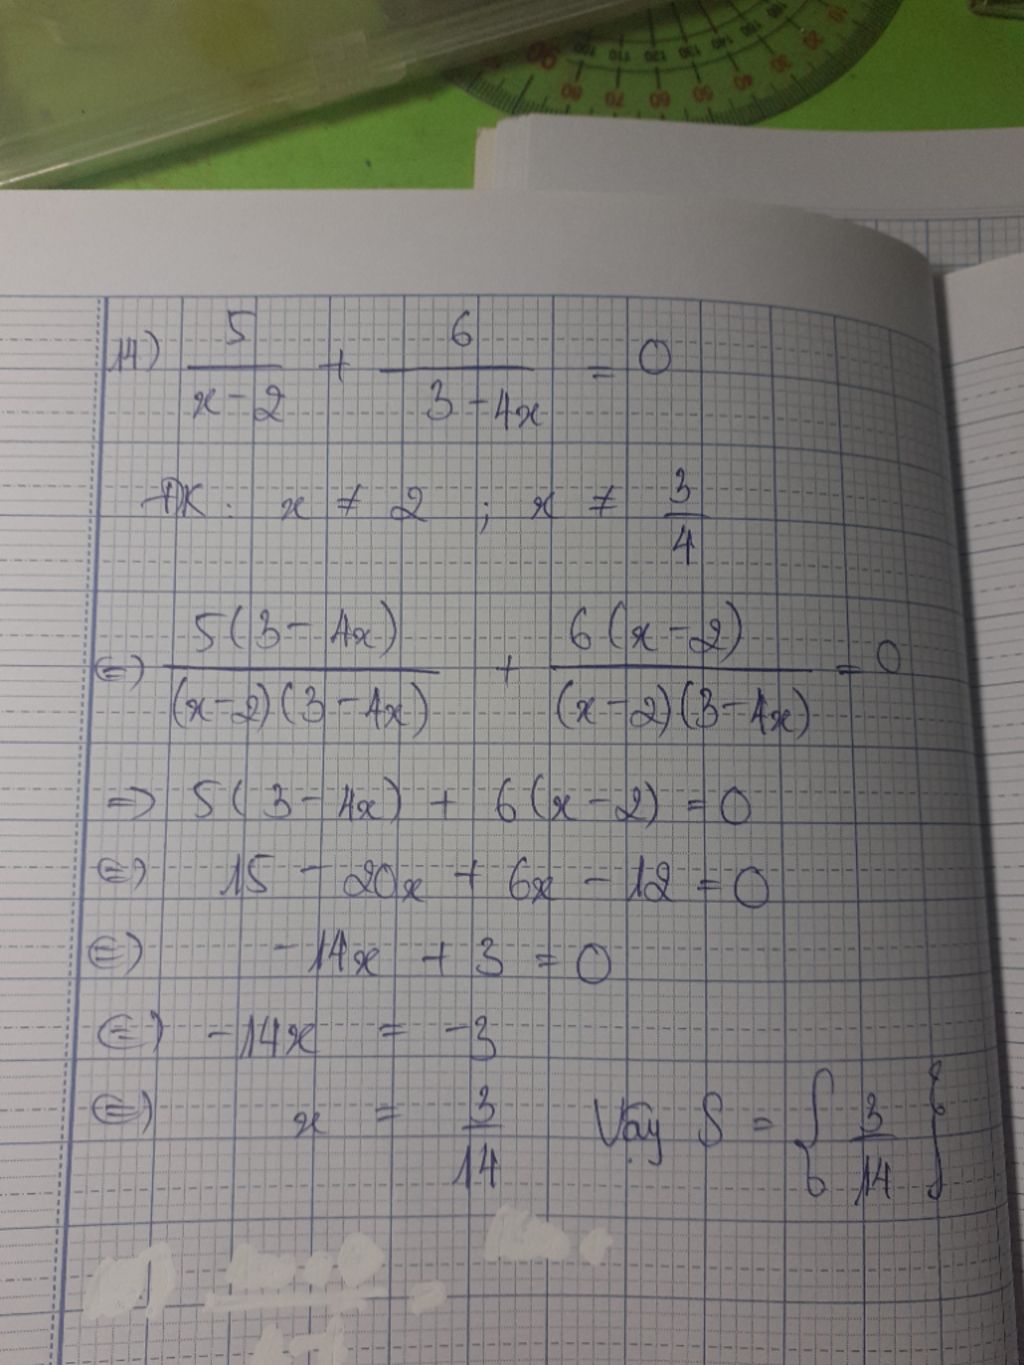 14) 5/(x-2) + 6/(3-4x) = 0
ĐK: x ≠ 2 ; x ≠ 3/4
⇔ 5(3-4x)/((x-2)(3-4x)) + 6(x-2)/((x-2)(3-4x)) = 0
⇒ 5(3-4x) + 6(x-2) = 0
⇔ 15 - 20x + 6x - 12 = 0
⇔ -14x + 3 = 0
⇔ -14x = -3
⇔ x = 3/14 Vậy S = {3/14}